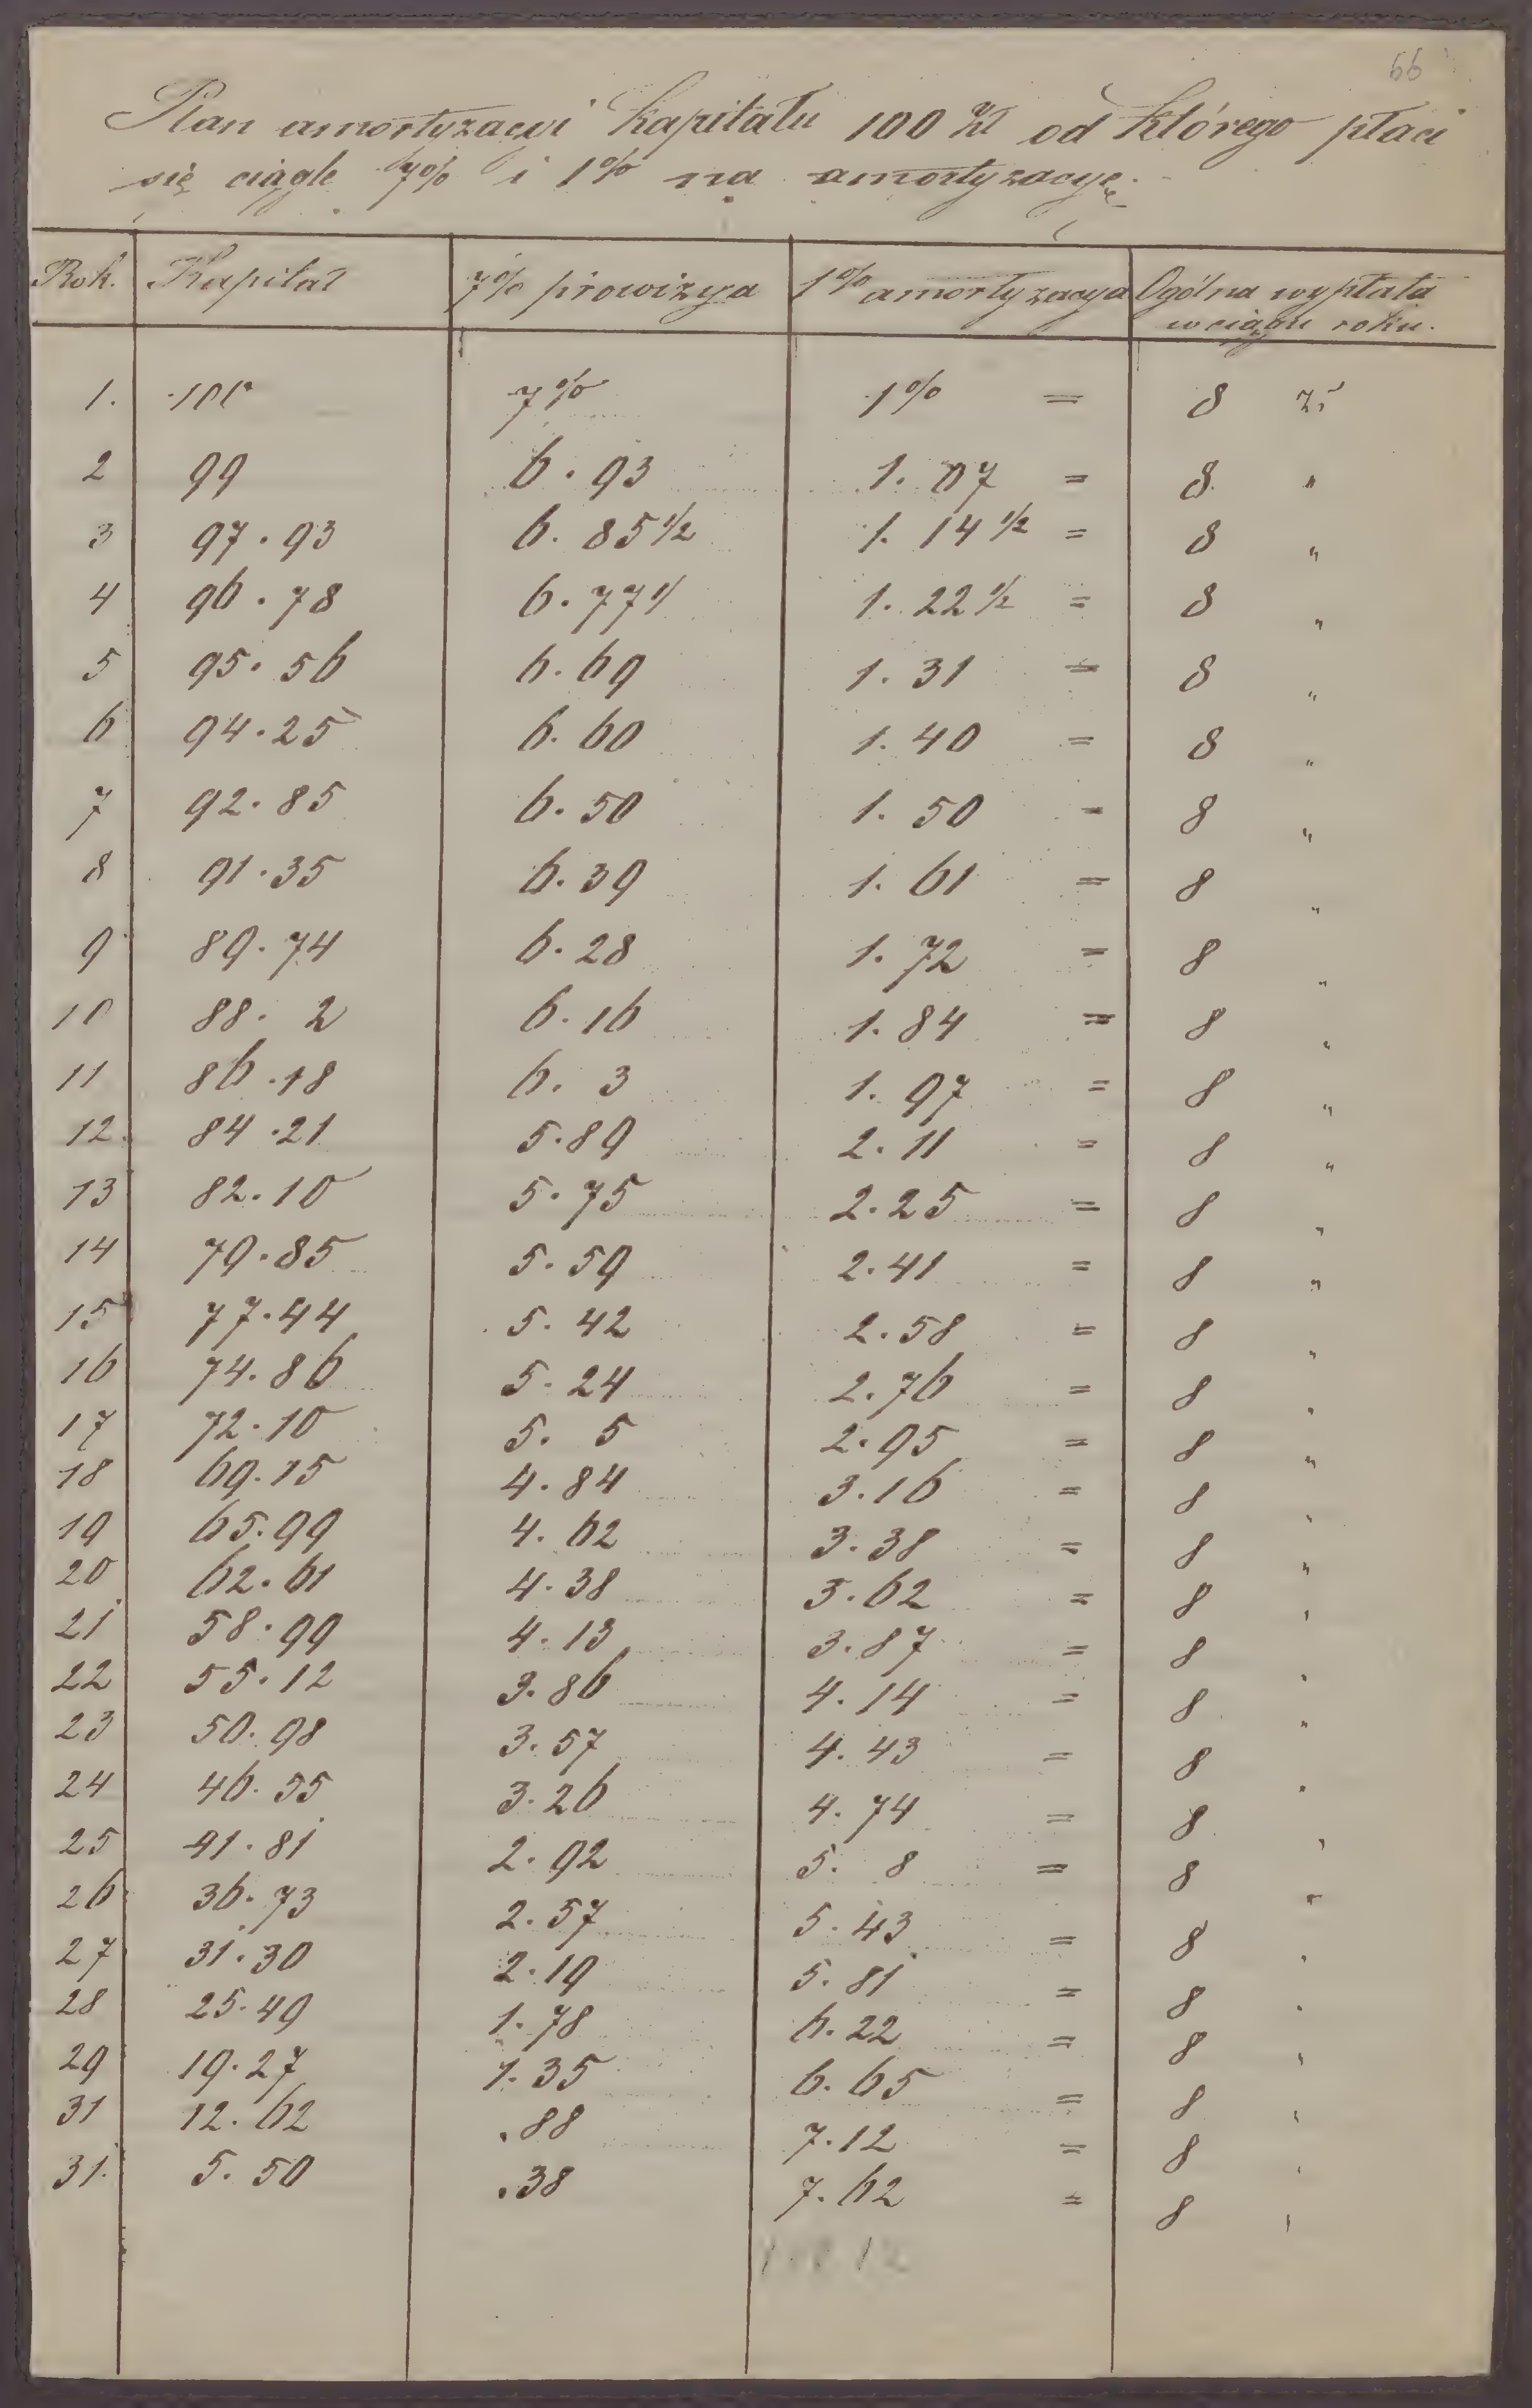 66
Plan amortyzacyi kapitału 100 Zł od którego płaci
się ciągle 7% i 1% na amortyzacyę.
Rok. Kapitał 7% prowizya 1% amortyzacya Ogólna wypłata
w ciągu roku.
1. 100 7% 1% = 8 Zł
2 99 6.93 1.07 = 8 "
3 97.93 6.85 1/2 1.14 1/2 = 8 "
4 96.78 6.77 1/ 1.22 1/2 = 8 "
5 95.56 6.69 1.31 = 8 "
6 94.25 6.60 1.40 = 8 "
7 92.85 6.50 1.50 = 8 "
8 91.35 6.39 1.61 = 8 "
9 89.74 6.28 1.72 = 8 "
10 88. 2 6.16 1.84 = 8 "
11 86.18 6. 3 1.97 = 8 "
12 84.21 5.89 2.11 = 8 "
13 82.10 5.75 2.25 = 8 "
14 79.85 5.59 2.41 = 8 "
15 77.44 5.42 2.58 = 8 "
16 74.86 5.24 2.76 = 8 "
17 72.10 5. 5 2.95 = 8 "
18 69.15 4.84 3.16 = 8 "
19 65.99 4.62 3.38 = 8 "
20 62.61 4.38 3.62 = 8 "
21 58.99 4.13 3.87 = 8 "
22 55.12 3.86 4.14 = 8 "
23 50.98 3.57 4.43 = 8 "
24 46.55 3.26 4.74 = 8 "
25 41.81 2.92 5. 8 = 8 "
26 36.73 2.57 5.43 = 8 "
27 31.30 2.19 5.81 = 8 "
28 25.49 1.78 6.22 = 8 "
29 19.27 1.35 6.65 = 8 "
31 12.62 .88 7.12 = 8 "
31. 5.50 .38 7.62 = 8 "